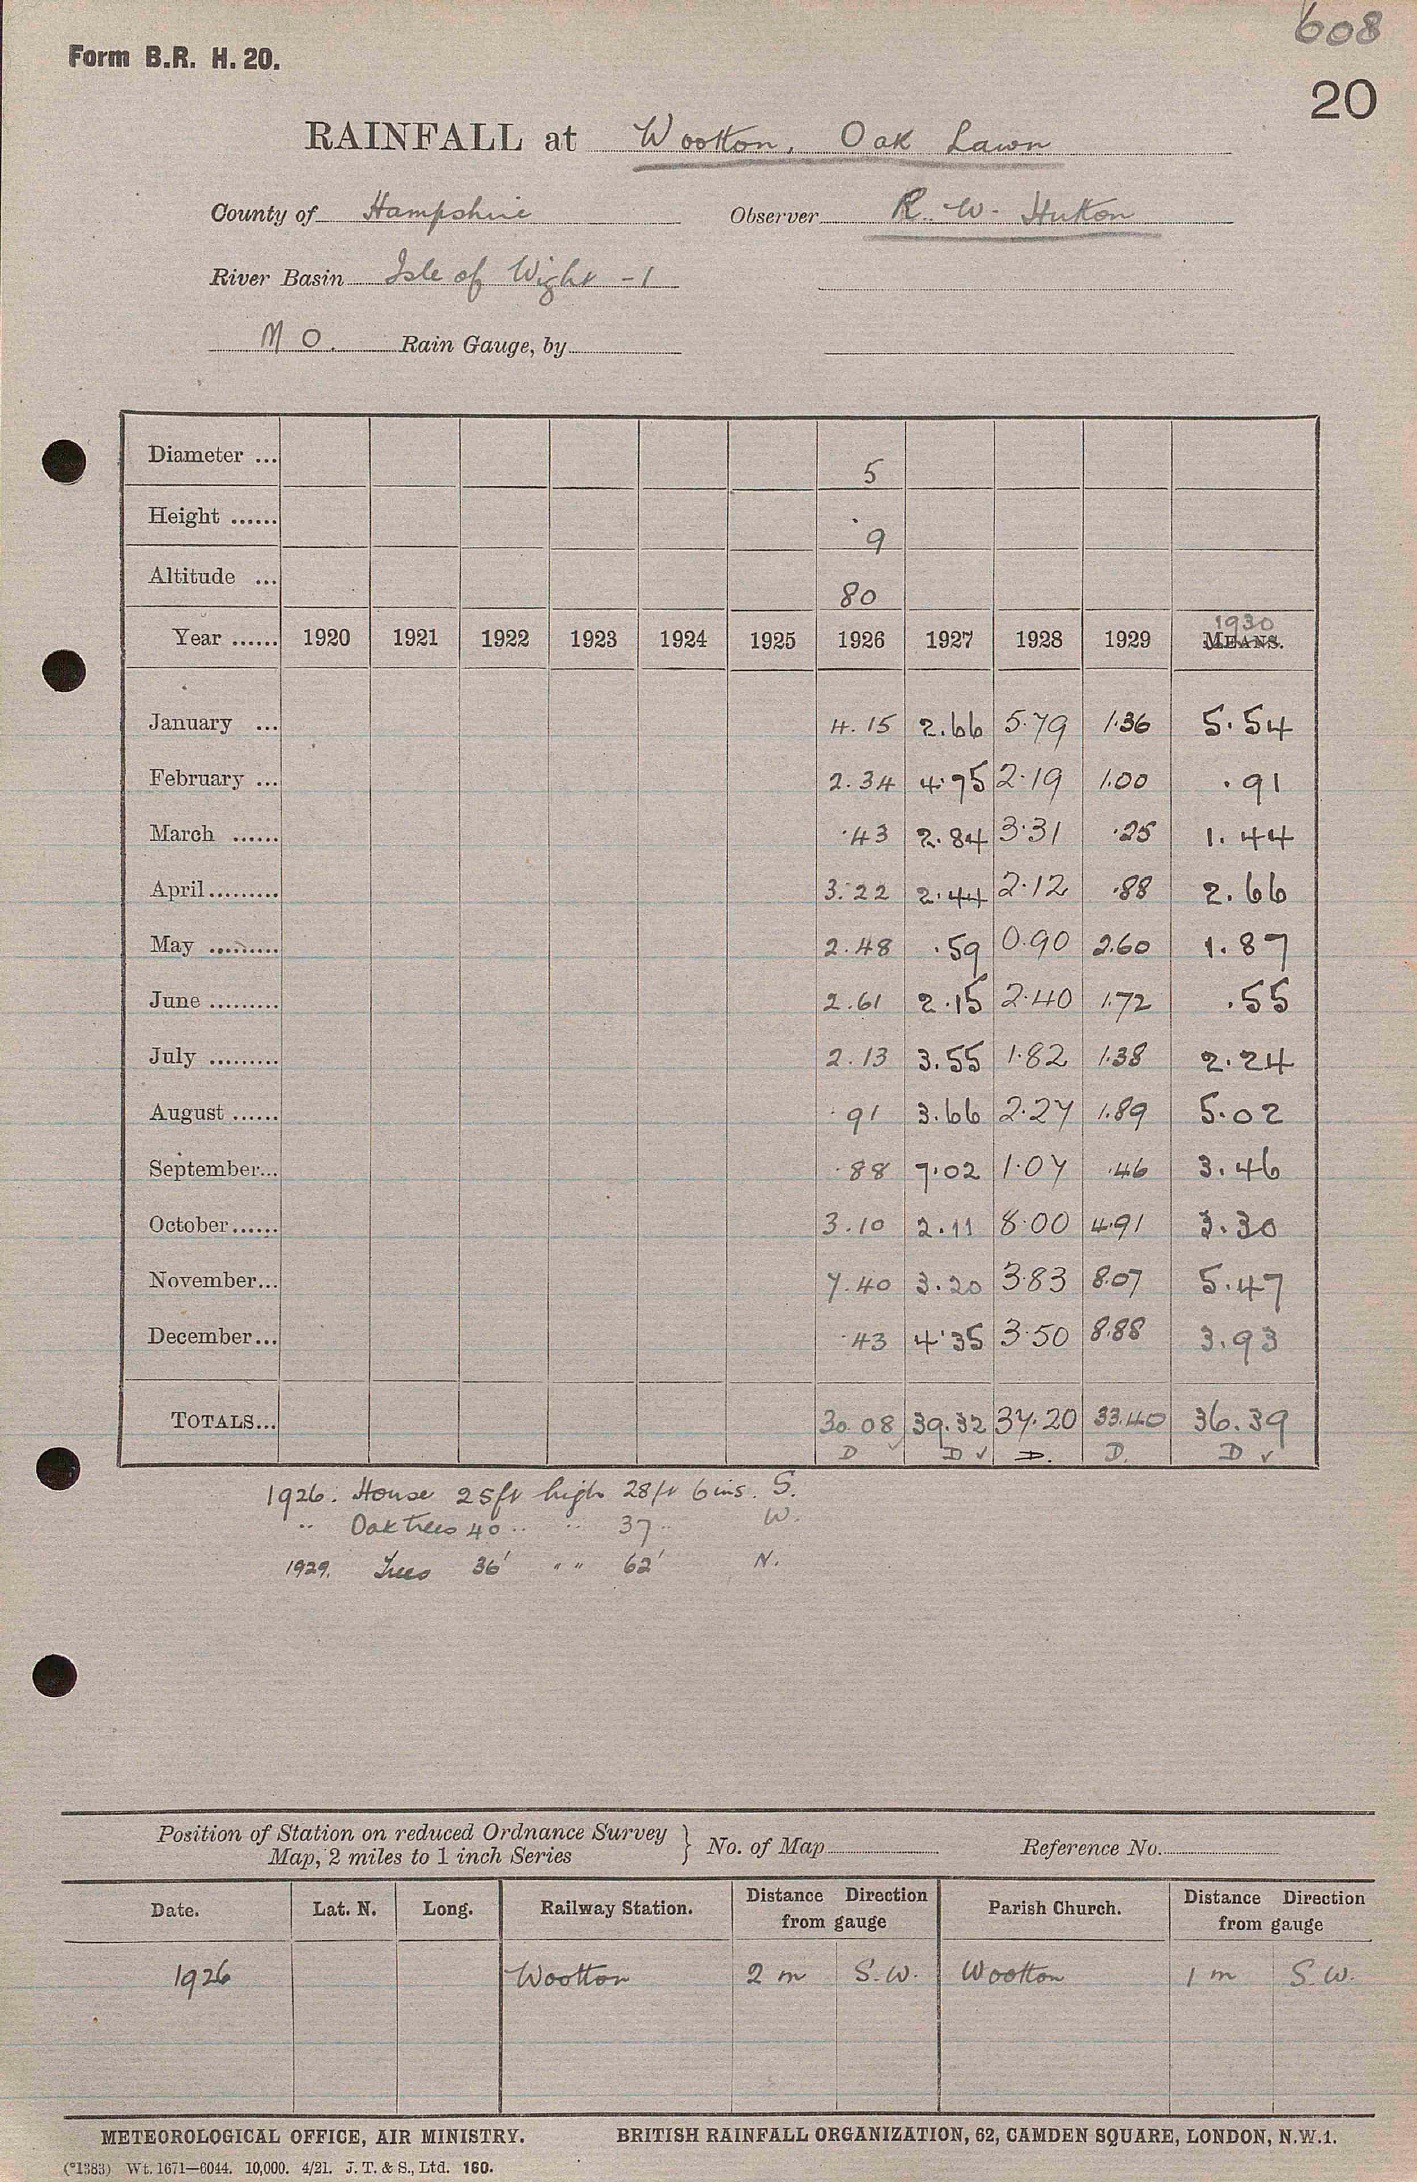 608
Form B.R. H. 20.
20
RAINFALL at Wootton, Oak Lawn
County of Hampshire Observer R. W. Hutton
River Basin Isle of Wight - 1
M O. Rain Gauge, by
Diameter ... 5
Height ...... 9
Altitude ... 80
Year ...... 1920 1921 1922 1923 1924 1925 1926 1927 1928 1929 1930 MEANS.
January ... 4.15 2.66 5.79 1.36 5.54
February ... 2.34 4.75 2.19 1.00 .91
March ...... .43 2.84 3.31 .25 1.44
April ......... 3.22 2.44 2.12 .88 2.66
May ......... 2.48 .59 0.90 2.60 1.87
June ......... 2.61 2.15 2.40 1.72 .55
July ......... 2.13 3.55 1.82 1.38 2.24
August ...... .91 3.66 2.27 1.89 5.02
September... .88 7.02 1.07 .46 3.46
October...... 3.10 2.11 8.00 4.91 3.30
November... 7.40 3.20 3.83 8.07 5.47
December... .43 4.35 3.50 8.88 3.93
TOTALS... 30.08 39.32 37.20 33.40 36.39
D D ✓ D. D. D ✓
1926. House 25ft high 28ft 6ins. S.
" Oak trees 40 " " 37 " W.
1929. Trees 36' " " 62' N.
Position of Station on reduced Ordnance Survey
Map, 2 miles to 1 inch Series } No. of Map Reference No.
Date. Lat. N. Long. Railway Station. Distance Direction from gauge Parish Church. Distance Direction from gauge
1926 Wootton 2 m S.W. Wootton 1 m S.W.
METEOROLOGICAL OFFICE, AIR MINISTRY. BRITISH RAINFALL ORGANIZATION, 62, CAMDEN SQUARE, LONDON, N.W.1.
(*1383) Wt. 1671—6044. 10,000. 4/21. J. T. & S., Ltd. 160.